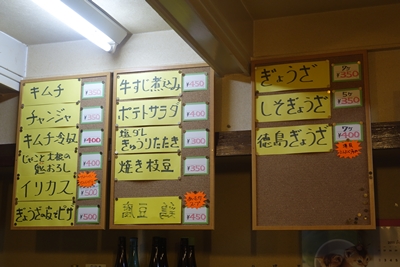 キムチ
¥350
チャンジャ
¥350
キムチ冷奴
¥400
じゃこと大根の
おろし
¥400
イリカス
¥500
ぎょうざの皮でピザ
¥500
牛すじ煮込み
¥350
ポテトサラダ
¥400
塩ダレ
きゅうりたたき
¥300
焼き枝豆
¥350
豆
¥450
ぎょうざ
¥350
しそぎょうざ
5ヶ
¥350
徳島ぎょうざ
7ヶ
¥400